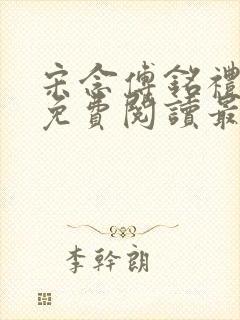 宋念傅銘禮
免費閱讀最
李幹朗